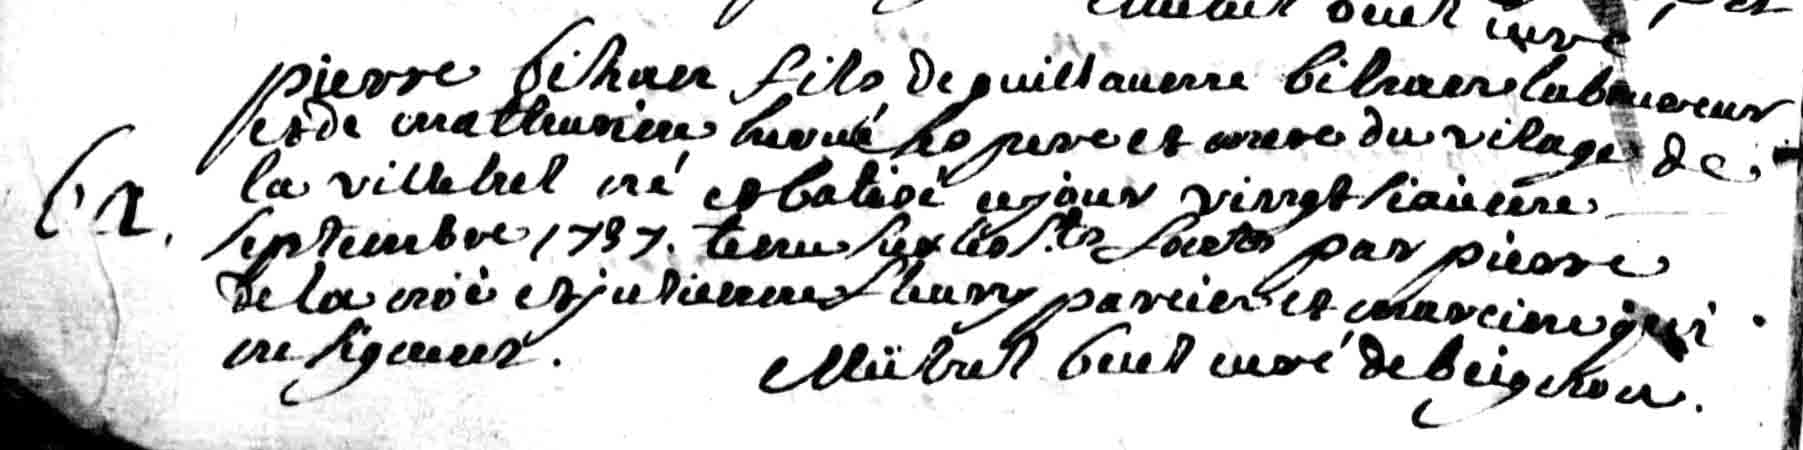 curé
pierre bihan fils de guillaume bihan laboureur
et de mathurine hervé ses pere et mere du vilage de
la ville né et batisé ce jour vingt sixieme
septembre 1737. tenu sur les s.ts fonts par pierre
de la noë et julienne fleury parein et mareine qui
ne signent.
curé de beignon.
bt.